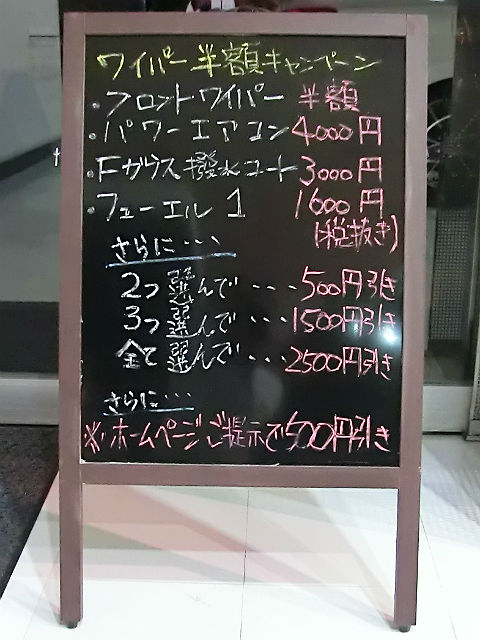 ワイパー半額キャンペーン
・フロントワイパー 半額
・パワーエアコン 4000円
・Fガラス撥水コート 3000円
・フューエル1 1600円
(税抜き)
さらに・・・
2つ選んで・・・500円引き
3つ選んで・・・1500円引き
全て選んで・・・2500円引き
さらに・・・
※ホームページご提示で500円引き